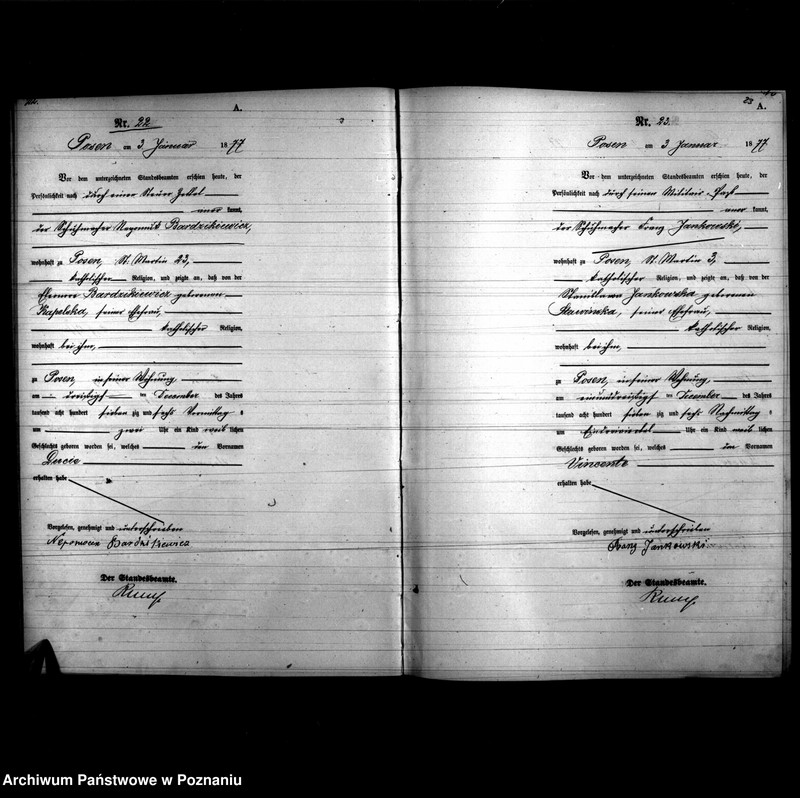 22.
A.
Nr. 22
Posen am 3 Januar 1877
Vor dem unterzeichneten Standesbeamten erschien heute, der
Persönlichkeit nach durch einen Steuer Zettel
aner kannt,
der Schuhmacher Bardzikiewicz,
wohnhaft zu Posen, St. Martin 23,
katholischer Religion, und zeigte an, daß von der
Bardzikiewicz geborenen
Kapelska, seiner Ehefrau,
katholischer Religion,
wohnhaft bei ihm,
zu Posen, in seiner Wohnung,
am dreißigsten December des Jahres
tausend acht hundert sieben zig und sechs Vormittag s
um zwei Uhr ein Kind weib lichen
Geschlechts geboren worden sei, welches den Vornamen
Lucie
erhalten habe
Vorgelesen, genehmigt und unterschrieben
Bardzikiewicz
Der Standesbeamte.
23
A.
Nr. 23.
Posen am 3 Januar 1877
Vor dem unterzeichneten Standesbeamten erschien heute, der
Persönlichkeit nach durch seinen Militair-Paß
aner kannt,
der Schuhmacher Franz Jankowski,
wohnhaft zu Posen, St. Martin 3,
katholischer Religion, und zeigte an, daß von der
Stanislawa Jankowska geborenen
Slawinska, seiner Ehefrau,
katholischer Religion,
wohnhaft bei ihm,
zu Posen, in seiner Wohnung,
am einunddreißigsten December des Jahres
tausend acht hundert sieben zig und sechs Nachmittag s
um Uhr ein Kind weib lichen
Geschlechts geboren worden sei, welches den Vornamen
Vincenta
erhalten habe
Vorgelesen, genehmigt und unterschrieben
Franz Jankowski
Der Standesbeamte.
Archiwum Państwowe w Poznaniu